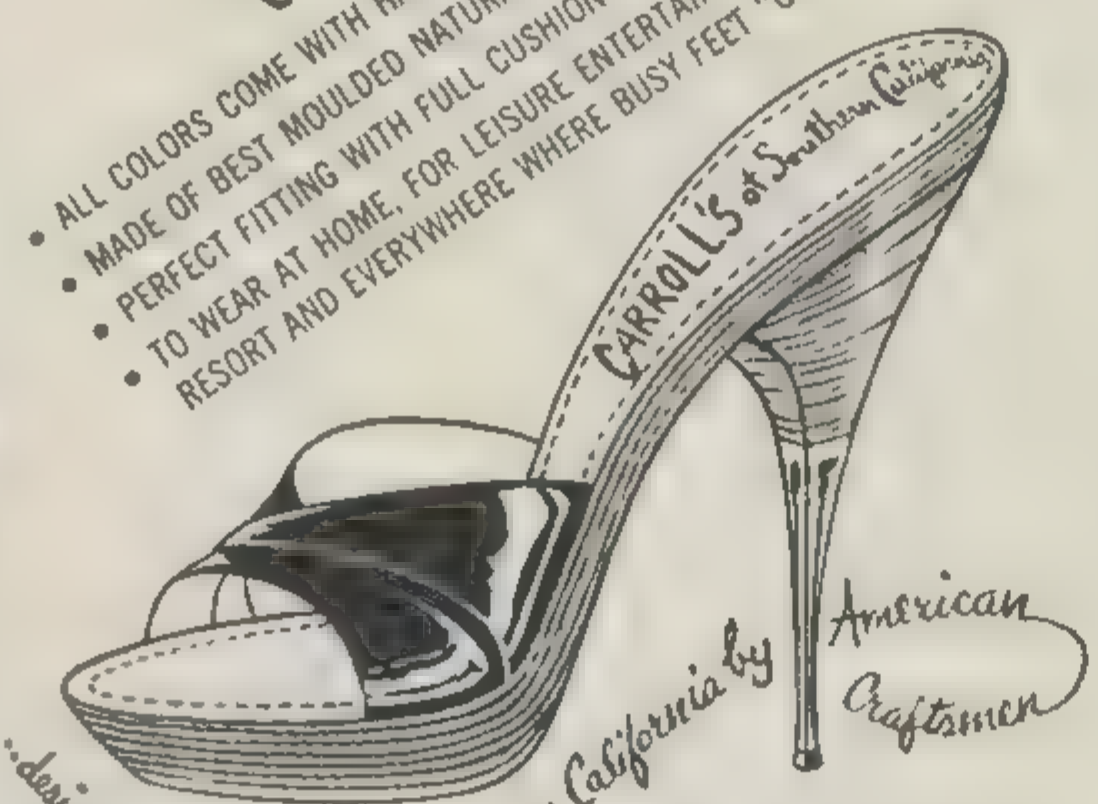 • ALL COLORS COME WITH
• MADE OF BEST MOULDED
• PERFECT FITTING WITH FULL CUSHION
• TO WEAR AT HOME, FOR LEISURE
RESORT AND EVERYWHERE WHERE BUSY FEET
CARROLL'S of Southern California
California by
American
Craftsmen